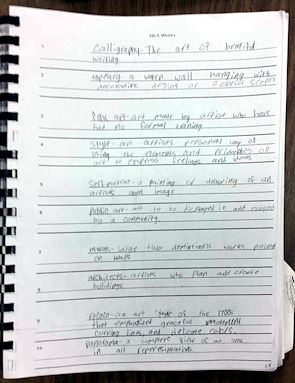 1 Calligraphy-The art of beatiful
writing.
2 tapestry-a woven wall hanging with
decorative design or scene
3 Folk art-art made by artist who have
but no formal training
4 style-an artists personal way of
using the elements and principles of
art to express feelings and ideas
5 Self portrait-a painting or drawing of an
artists own image
6 Public art-art to be displayed in and enjoyed
by a community.
7 mural-large two works painted
on walls
8 architects-artists who plan and create
buildings.
9 rococo-an art style of the 1700s
that emphasized graceful movement
curving lines, and delicate colors.
10 panorama-a complete view of an area
in all